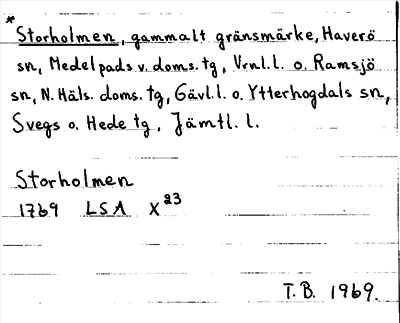 * Storholmen, gammalt gränsmärke, Haverö
sn, Medelpads v. doms. tg, Vrnl. l. o. Ramsjö
sn, N. Häls. doms. tg, Gävl. l. o. Ytterhogdals sn,
Svegs o. Hede tg, Jämtl. l.
Storholmen
1769 LSA X23
T.B. 1969.